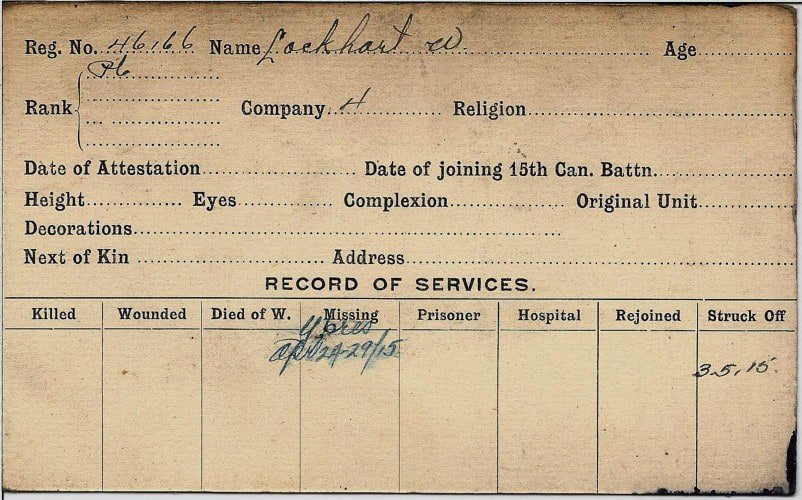 Reg. No. 46166 Name Lockhart W Age
Pte
Rank Company 4 Religion
Date of Attestation Date of joining 15th Can. Battn.
Height Eyes Complexion Original Unit
Decorations
Next of Kin Address
RECORD OF SERVICES.
Killed Wounded Died of W. Missing Prisoner Hospital Rejoined Struck Off
Ypres
Apr 24-29/15
3.5.15.